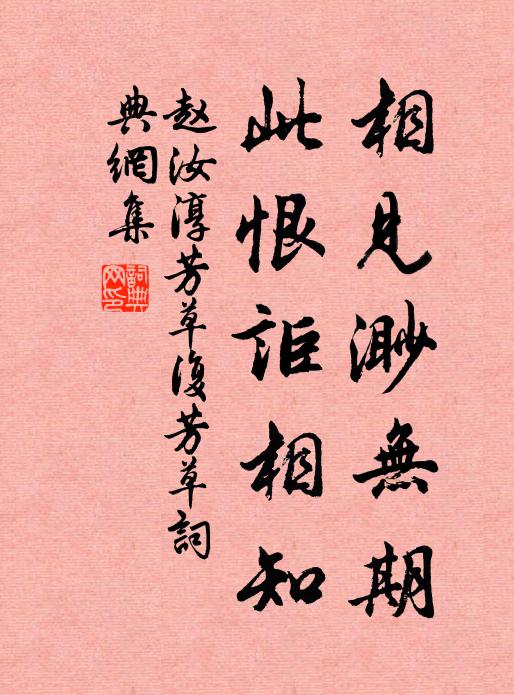 相見渺無期
此恨詎相知
赵汝淳芳草復芳草詞
典網集
詞典網印